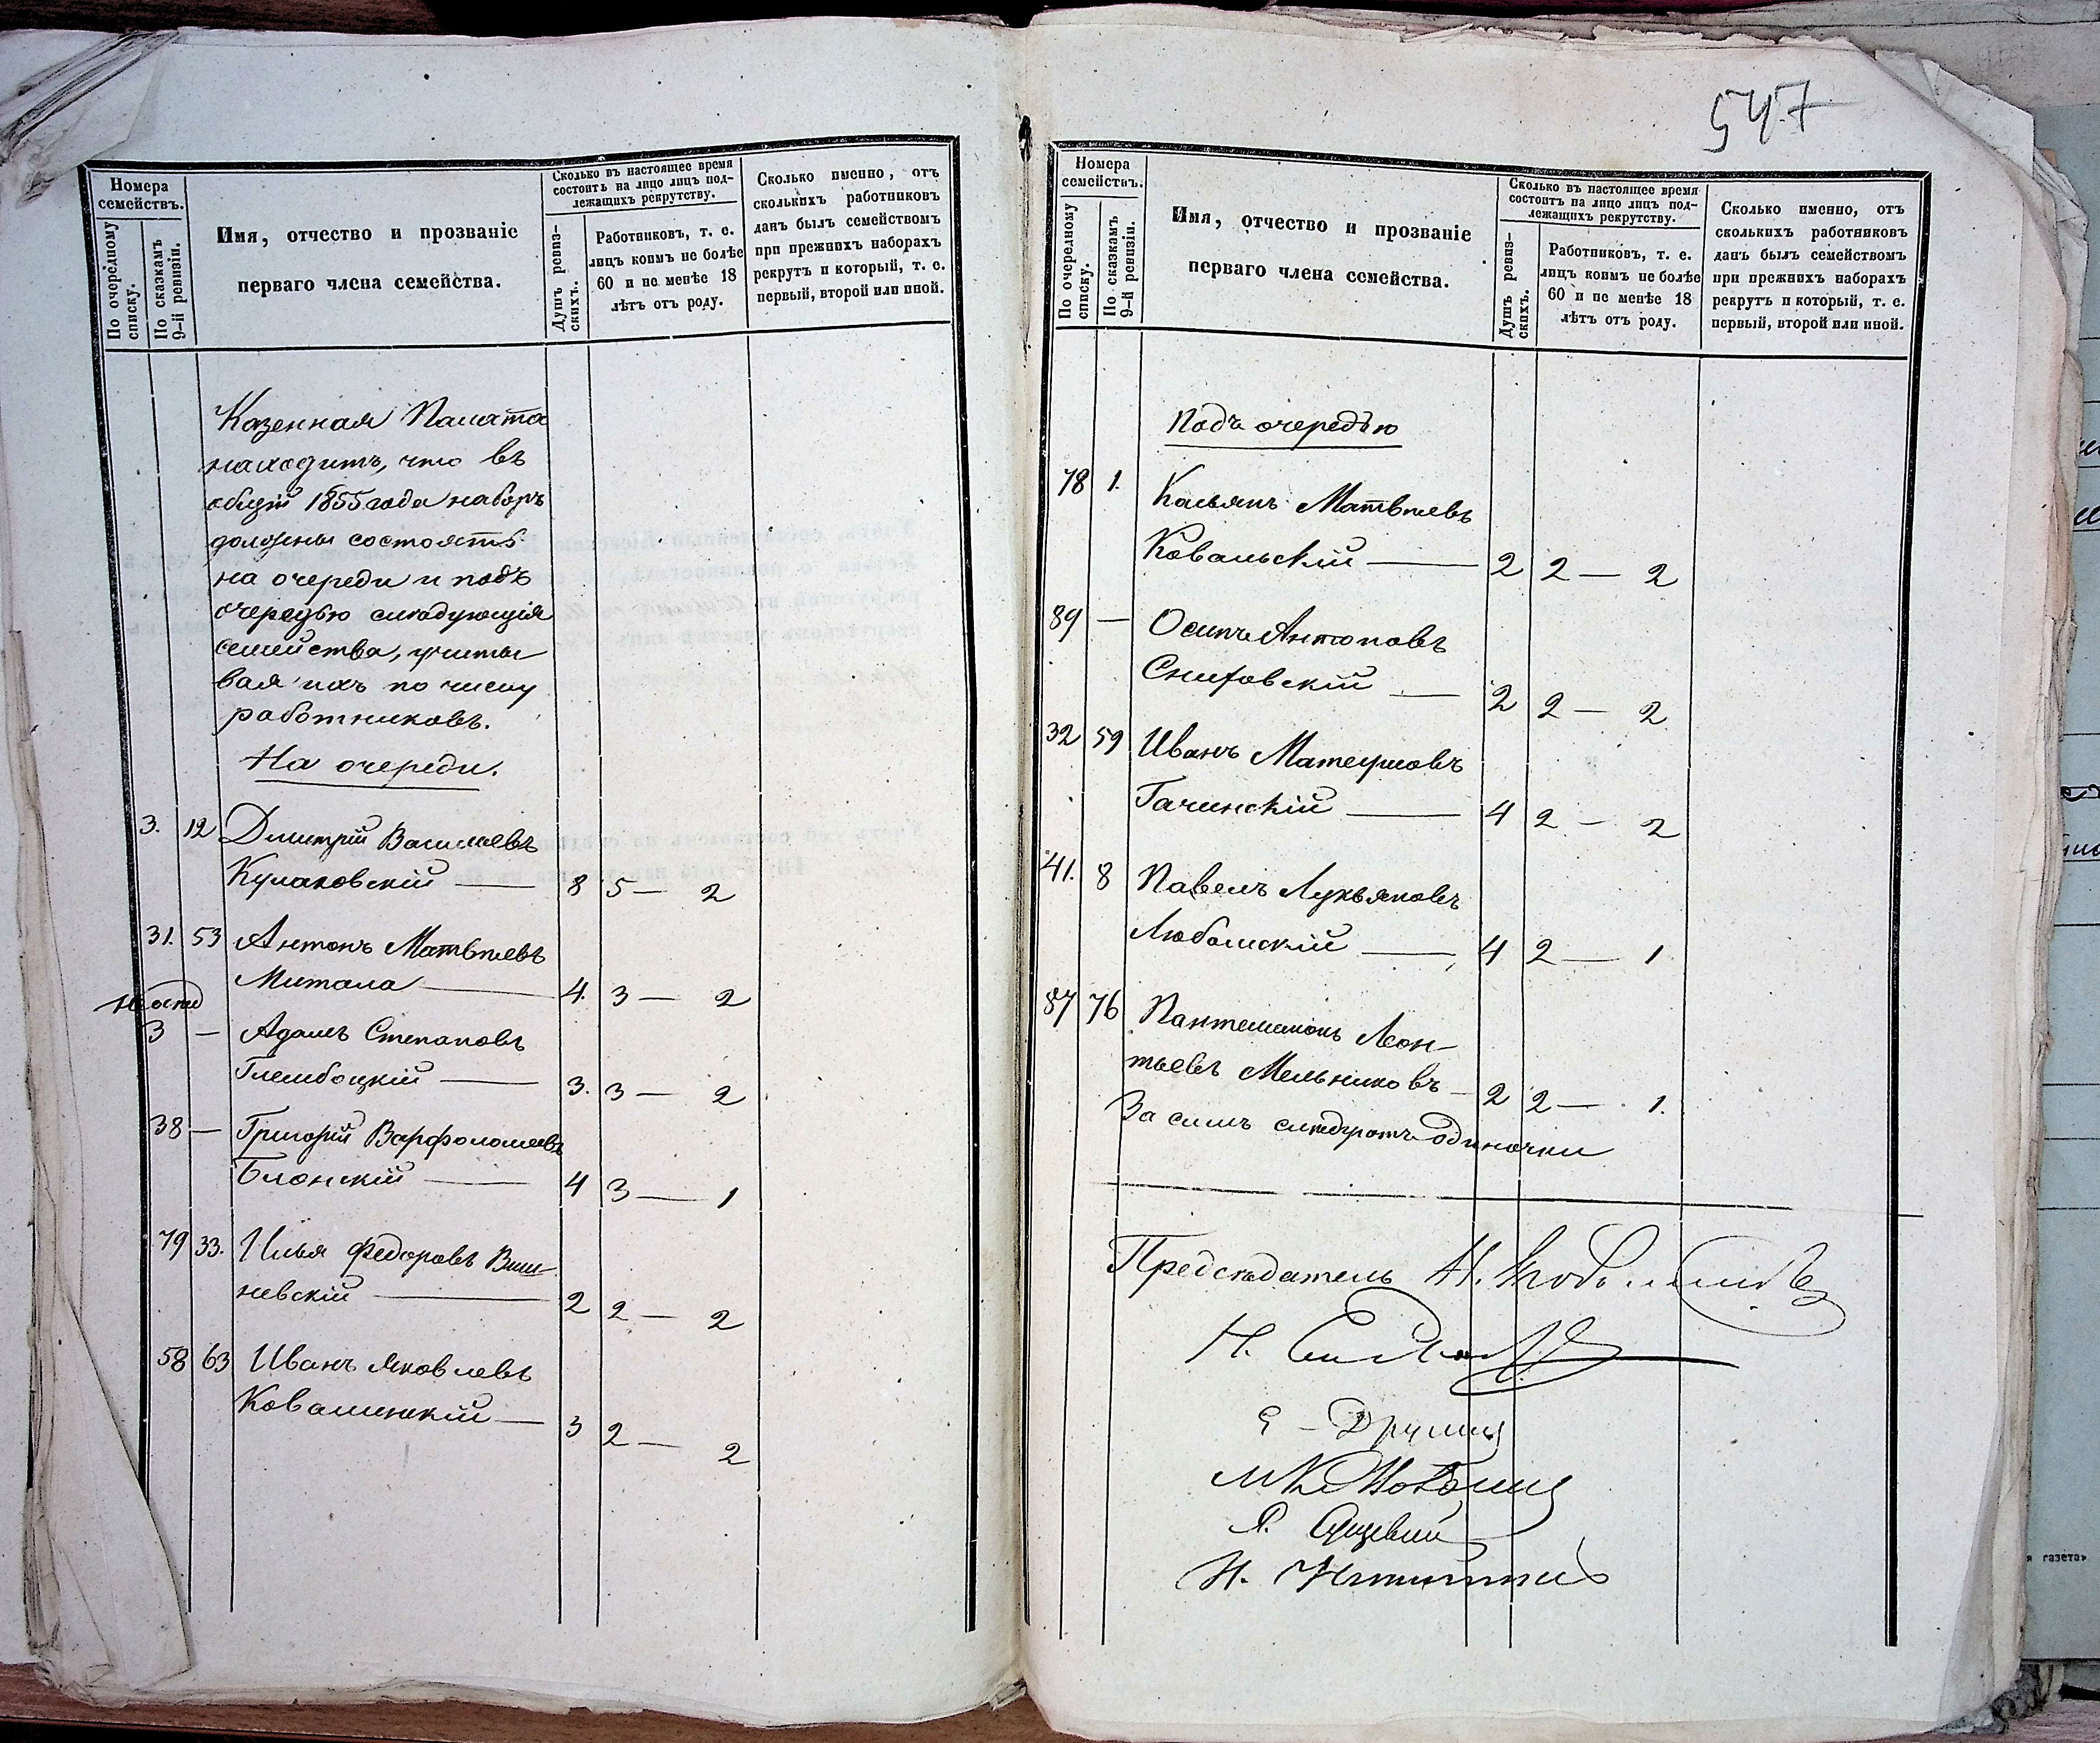 547
Номера
семействъ.
По очередному
списку.
По сказкамъ
9-й ревизіи.
Имя, отчество и прозваніе
перваго члена семейства.
Сколько въ настоящее время
состоитъ на лицо лицъ под-
лежащихъ рекрутству.
Душъ ревиз-
скихъ.
Работниковъ, т. е.
лицъ коимъ не болѣе
60 и не менѣе 18
лѣтъ отъ роду.
Сколько именно, отъ
сколькихъ работниковъ
данъ былъ семействомъ
при прежнихъ наборахъ
рекрутъ и который, т. е.
первый, второй или иной.
Казенная Палата
находитъ, что въ
общій 1855 года наборъ
должны состоять
на очереди и подъ
очередью слѣдующія
семейства, учиты
вая ихъ по числу
работниковъ.
На очереди.
3. 12 Дмитрій Васильевъ
Кулаковскій — 8 5 — 2
31. 53 Антонъ Матвѣевъ
Митала — 4. 3 — 2
3 — Адамъ Степановъ
Глембоцкій — 3. 3 — 2
38 — Григорій Варфоломеевъ
Блонскій — 4 3 — 1
79 33. Илья Федоровъ Виш-
невскій — 2 2 — 2
58 63 Иванъ Яковлевъ
Ковалинскій — 3 2 — 2
Номера
семействъ.
По очередному
списку.
По сказкамъ
9-й ревизіи.
Имя, отчество и прозваніе
перваго члена семейства.
Сколько въ настоящее время
состоитъ на лицо лицъ под-
лежащихъ рекрутству.
Душъ ревиз-
скихъ.
Работниковъ, т. е.
лицъ коимъ не болѣе
60 и не менѣе 18
лѣтъ отъ роду.
Сколько именно, отъ
сколькихъ работниковъ
данъ былъ семействомъ
при прежнихъ наборахъ
рекрутъ и который, т. е.
первый, второй или иной.
Подъ очередью
78 1. Касьянъ Матвѣевъ
Ковальскій — 2 2 — 2
89 — Осипъ Антоновъ
— 2 2 — 2
32 59 Иванъ Матеушовъ
Гачинскій — 4 2 — 2
41. 8 Павелъ Лукьяновъ
Любомскій — 4 2 — 1
87 76 Пантелимонъ Леон-
тьевъ Мельниковъ — 2 2 — 1.
За симъ слѣдуютъ одиночки
Предсѣдатель Н.
Н.
газета»